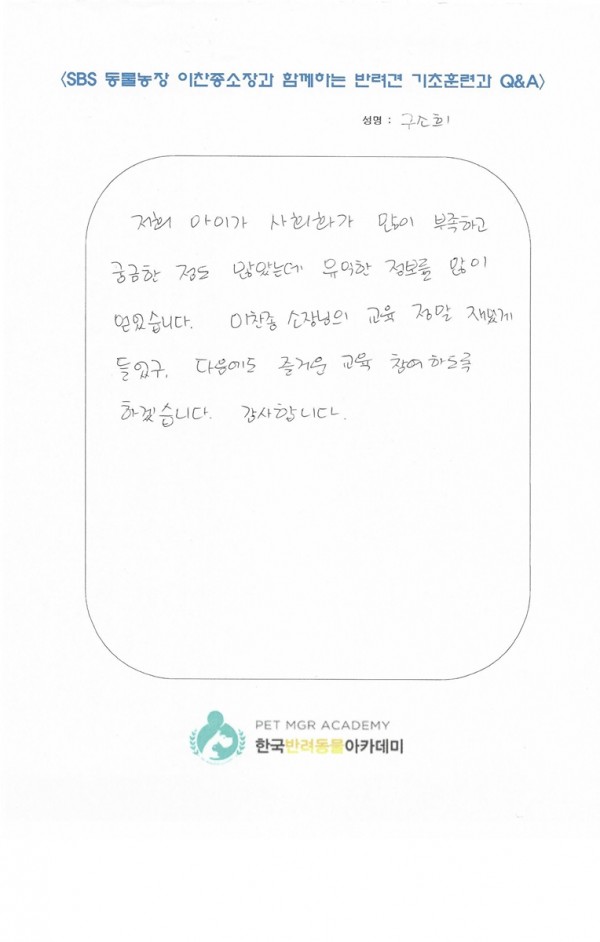 <SBS 동물농장 이찬종소장과 함께하는 반려견 기초훈련과 Q&A>
성명 : 구소희
저희 아이가 사회화가 많이 부족하고
궁금한 점도 많았는데 유익한 정보를 많이
얻었습니다. 이찬종 소장님의 교육 정말 재밌게
들었구, 다음에도 즐거운 교육 참여하도록
하겠습니다. 감사합니다.
PET MGR ACADEMY
한국반려동물아카데미